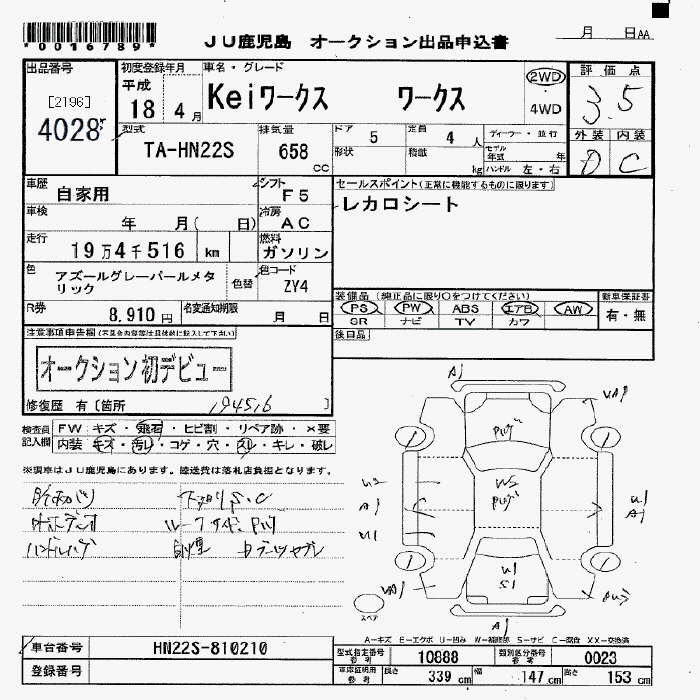 *0016789*
JU鹿児島 オークション出品申込書
月 日 AA
出品番号
[2196]
4028
初度登録年月
平成
18 4 月
車名・グレード
Keiワークス ワークス
2WD
4WD
評価点
3.5
外装 内装
D C
型式
TA-HN22S
排気量
658
CC
ドア 5
定員 4 人
形状
積載 kg
ディーラー・並行
モデル年式 年
ハンドル 左・右
車歴
自家用
シフト
F5
車検
年 月( 日)
冷房
AC
走行
19万4千516 km
燃料
ガソリン
色
アズールグレーパールメタリック
色替
色コード
ZY4
R券
8,910 円
名変通知期限
月 日
セールスポイント(正常に機能するものに限ります)
レカロシート
装備品(純正品に限り○をつけてください)
PS PW ABS エアB AW
SR ナビ TV カワ
新車保証書
有・無
後日品
注意事項申告欄(不具合内容等は具体的に記入して下さい)
オークション初デビュー
修復歴 有〔箇所 194516 〕
検査員記入欄
FW キズ・飛石・ヒビ割・リペア跡・×要
内装 キズ・汚レ・コゲ・穴・スレ・キレ・破レ
※調車はJU鹿児島にあります。陸送費は落札店負担となります。
下廻りS.C
A1
W2
A1
U1
U1
A1
W3
U1
S1
A1
スペア
A−キズ E−エクボ U−凹み W−補修跡 S−サビ C−腐食 XX−交換済
車台番号
HN22S-810210
登録番号
型式指定番号
参考
10888
類別区分番号
参考
0023
車庫証明用
参考
長さ 339 cm
幅 147 cm
高さ 153 cm